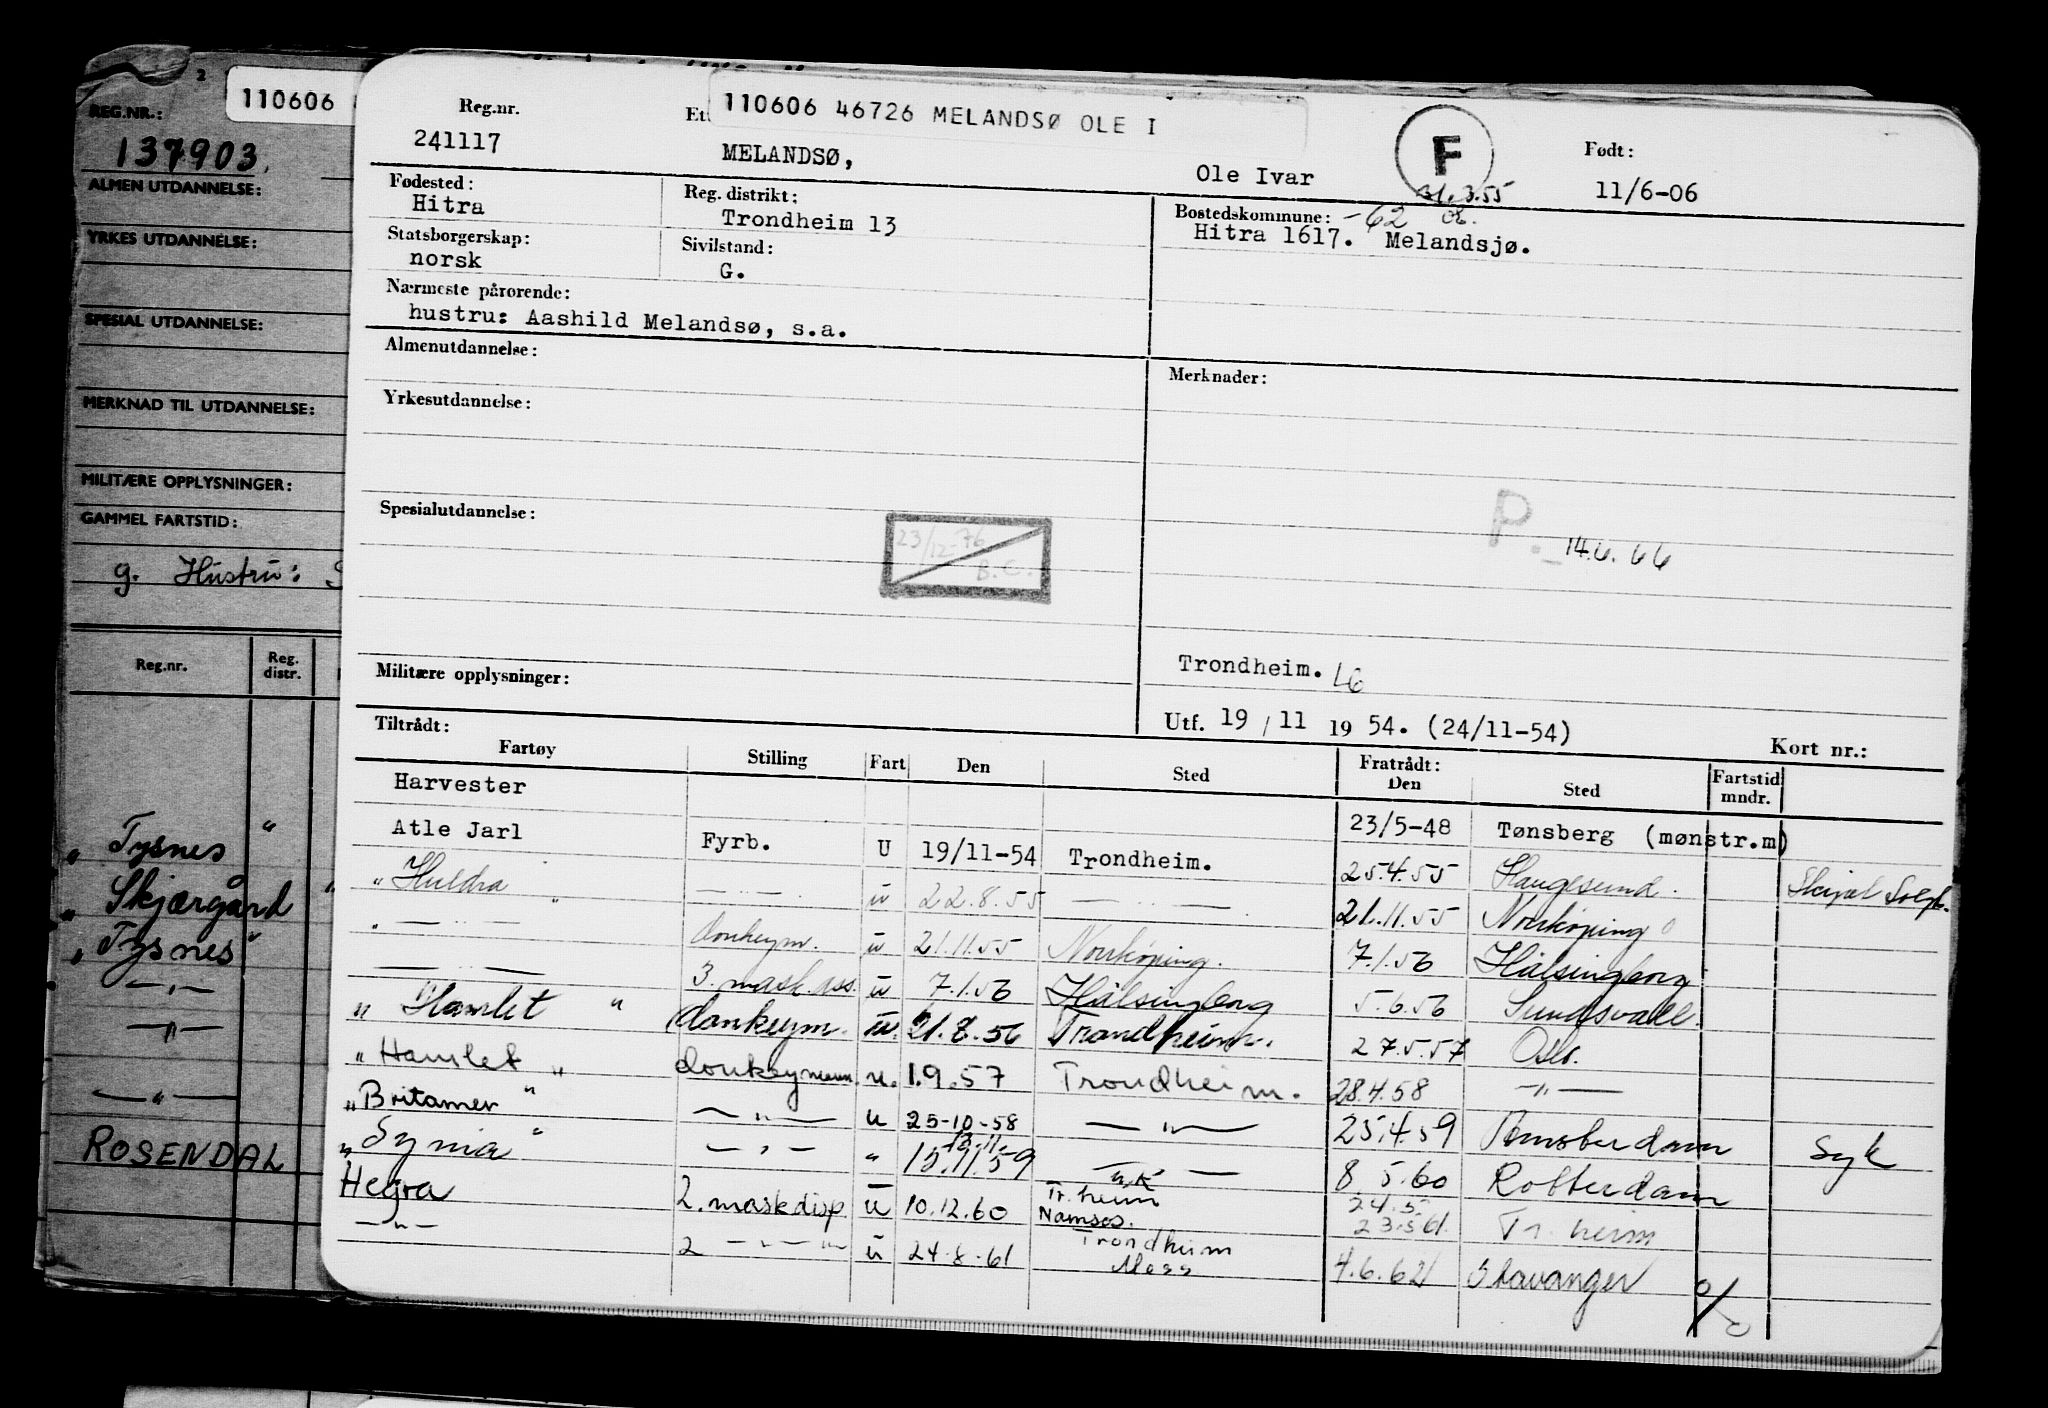 2
REG.NR.:
110606
137903.
ALMEN UTDANNELSE:
YRKES UTDANNELSE:
SPESIAL UTDANNELSE:
MERKNAD TIL UTDANNELSE:
MILITÆRE OPPLYSNINGER:
GAMMEL FARTSTID:
g. Hustru: S
Reg.nr. Reg. distr.
" Tysnes "
" Skjærgård "
" Tysnes "
— " —
— " —
— " —
ROSENDAL
110606 46726 MELANDSØ OLE I
Reg.nr. Ett F Født:
241117 MELANDSØ, Ole Ivar 31.3.55 11/6-06
Fødested: Reg. distrikt: Bostedskommune: -62
Hitra Trondheim 13 Hitra 1617. Melandsjø.
Statsborgerskap: Sivilstand:
norsk G.
Nærmeste pårørende:
hustru: Aashild Melandsø, s.a.
Almenutdannelse: Merknader:
Yrkesutdannelse:
Spesialutdannelse:
23/12-76 B.C.
P. - 14.6.66
Trondheim. L6
Militære opplysninger:
Utf. 19 / 11 19 54. (24/11-54)
Tiltrådt: Kort nr.:
Fartøy Stilling Fart Den Sted Fratrådt: Den Sted Fartstid mndr.
Harvester 23/5-48 Tønsberg (mønstr.m)
Atle Jarl Fyrb. U 19/11-54 Trondheim. 25.4.55 Haugesund. Skipet Solgt.
" Huldra " — " — u 22.8.55 — " — 21.11.55 Norrköping
" — " — donkeym. u 21.11.55 Norrköping. 7.1.56 Hälsingborg
— " — 3. mask.ass. u 7.1.56 Hälsingborg 5.6.56 Sundsvall.
" Hamlet " donkeym. u. 21.8.56 Trondheim. 27.5.57 Oslo.
" Hamlet " donkeymann. u. 1.9.57 Trondheim. 28.4.58 — " —
" Britamer " — " — u 25-10-58 — " — 25.4.59 Amsterdam Syk
" Synia " — " — " 12.11.59 — " — 8 5.60 Rotterdam
Hegra 2. maskdisp u 10.12.60 Tr.heim Namsos. 24.5. 23.5 61. Tr. heim
— " — 2 — " — u 24.8.61 Trondheim Moss 4.6.62 Stavanger